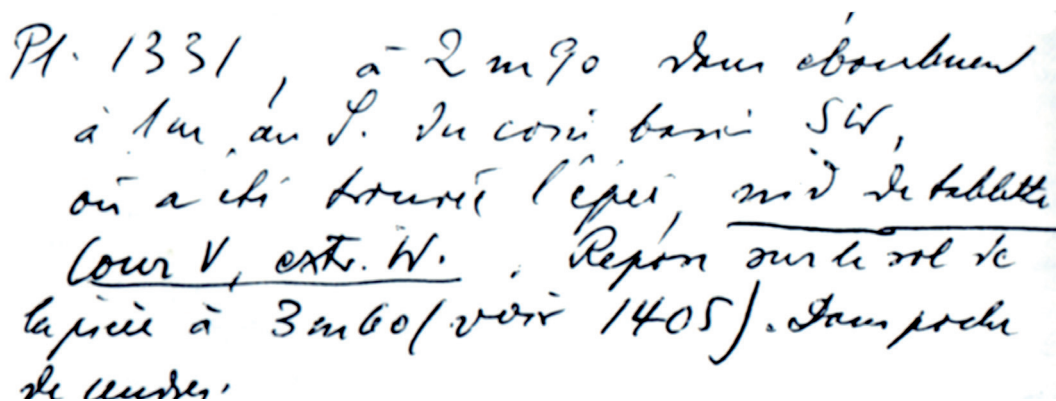 Pt. 1331, à 2m90 dans éboulement
à 1m au S. du coin bassin SW,
où a été trouvée l'épée, nid de tablettes
Cour V, extr. W. . Repose sur le sol de
la pièce à 3m60 (voir 1405). Dans poche
de cendres.